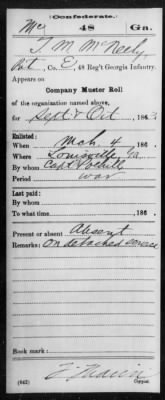 (Confederate.)
Mc 48 Ga.
T. M. McNeely
Pvt., Co. E, 48 Reg't Georgia Infantry.
Appears on
Company Muster Roll
of the organization named above,
for Sept & Oct, 186
Enlisted:
When Mch 4, 186
Where Louisville Ga
By whom Capt
Period war
Last paid:
By whom
To what time , 186 .
Present or absent Absent
Remarks: On detached service
Book mark:
(642) Copyist.